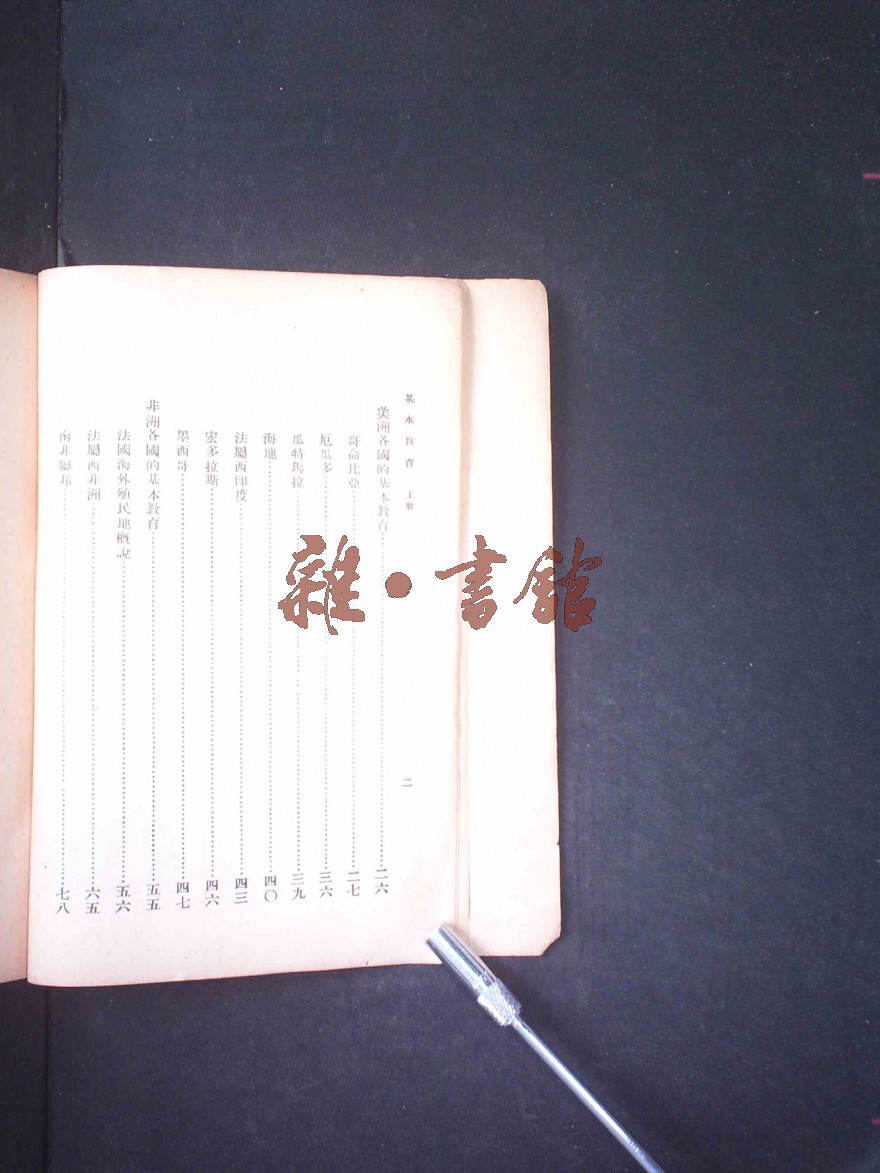 基本教育　上册
二
美洲各國的基本教育……二六
哥倫比亞……二七
厄瓜多……三六
瓜特馬拉……三九
海地……四〇
法屬西印度……四三
宏多拉斯……四六
墨西哥……四七
非洲各國的基本教育……五五
法國海外殖民地概說……五六
法屬西非洲……六五
南非聯邦……七八
雜·書館